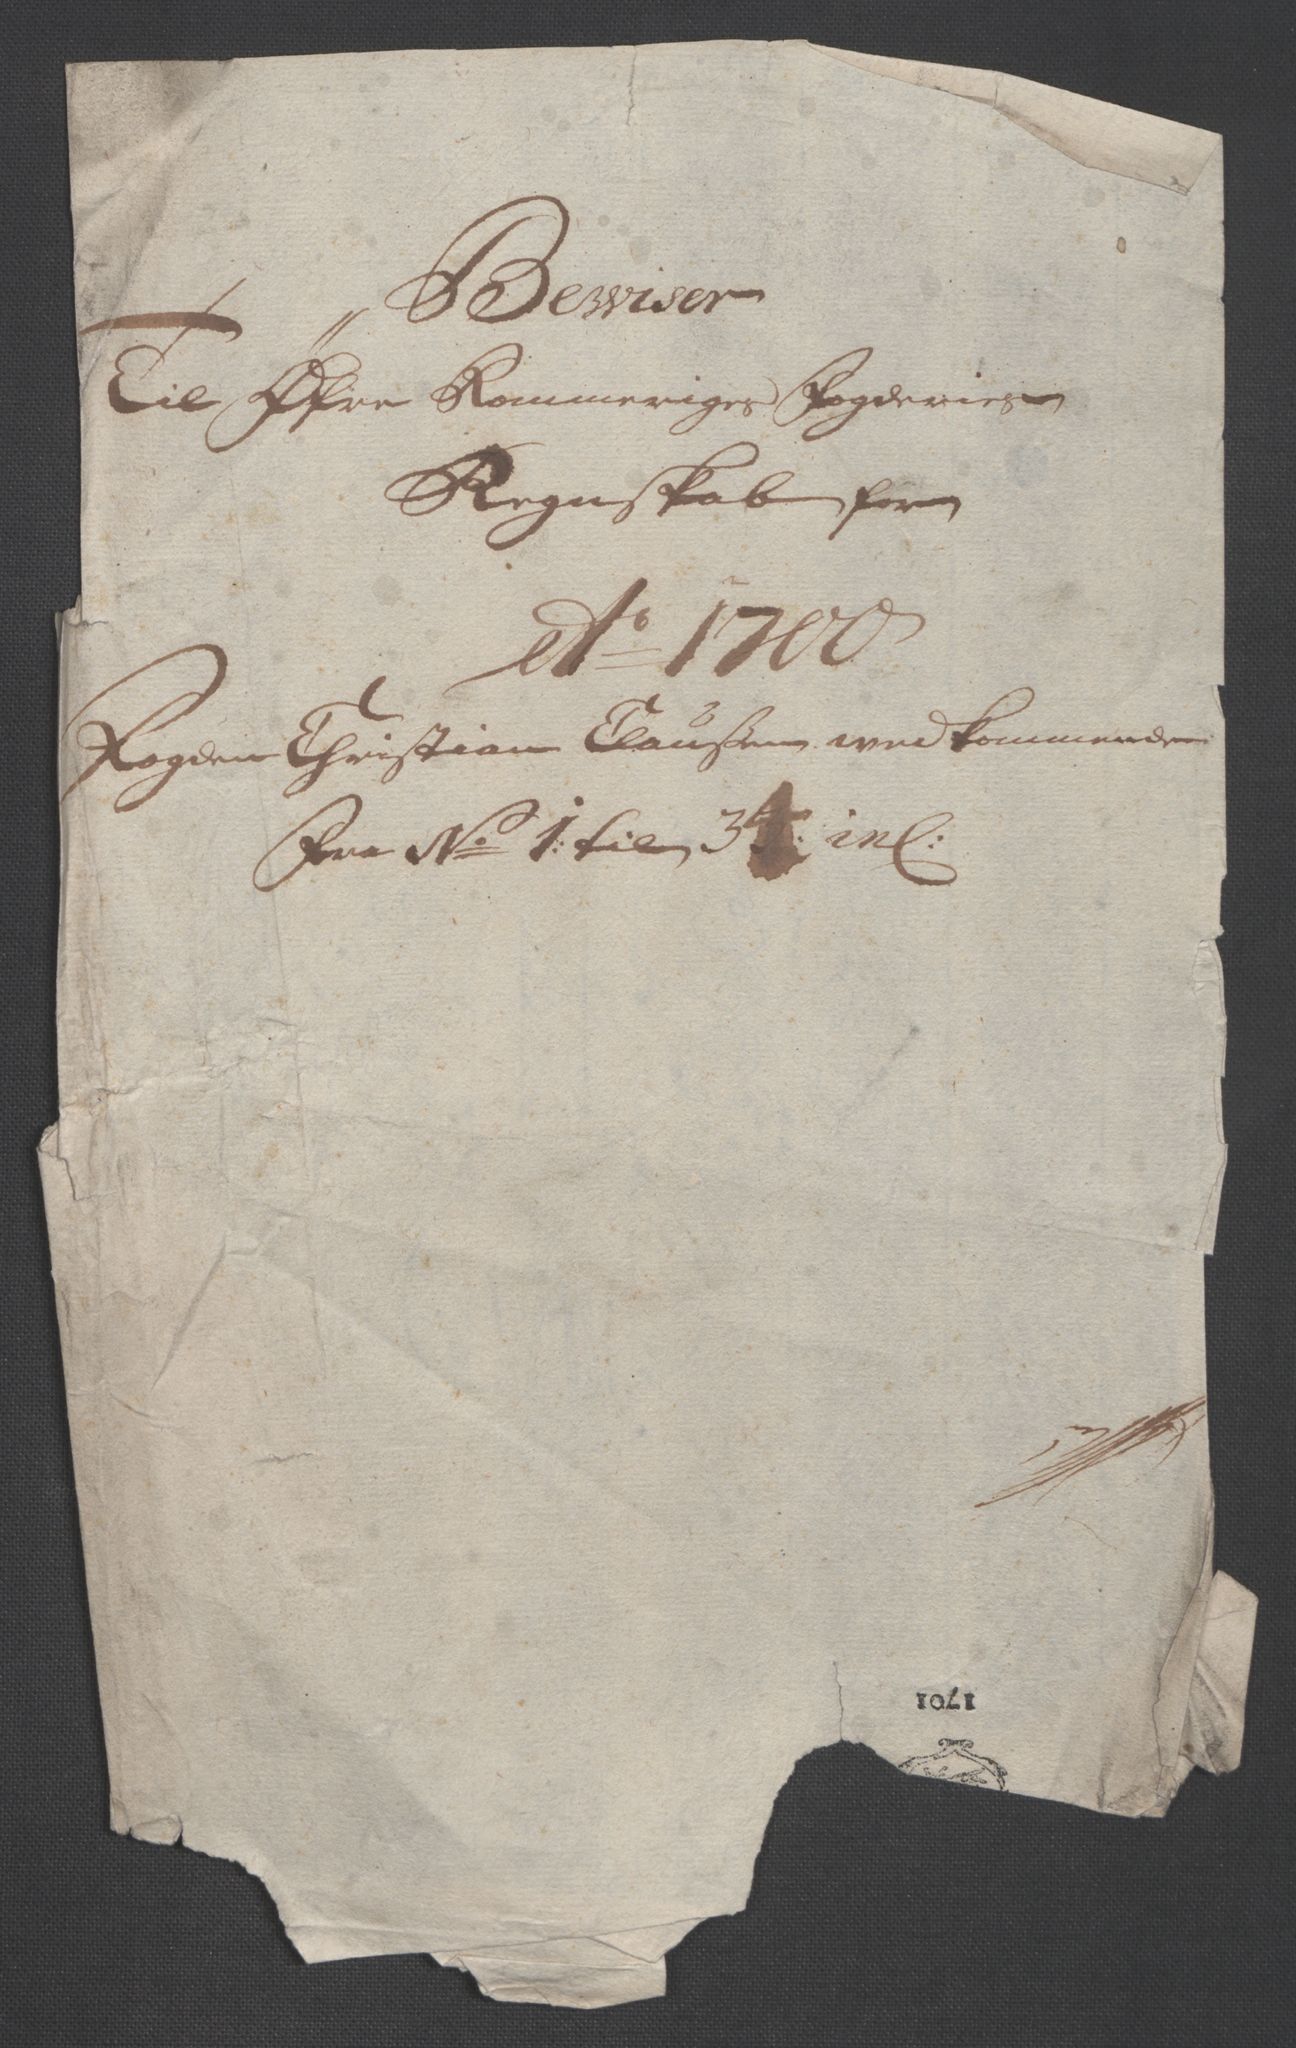 Bewiser
Til Øfre Rommeriges Fogderies
Regnskab for
Ao 1700
Fogden Christian Claussen wedkommende
Fra No 1: til 34: incl:
1701